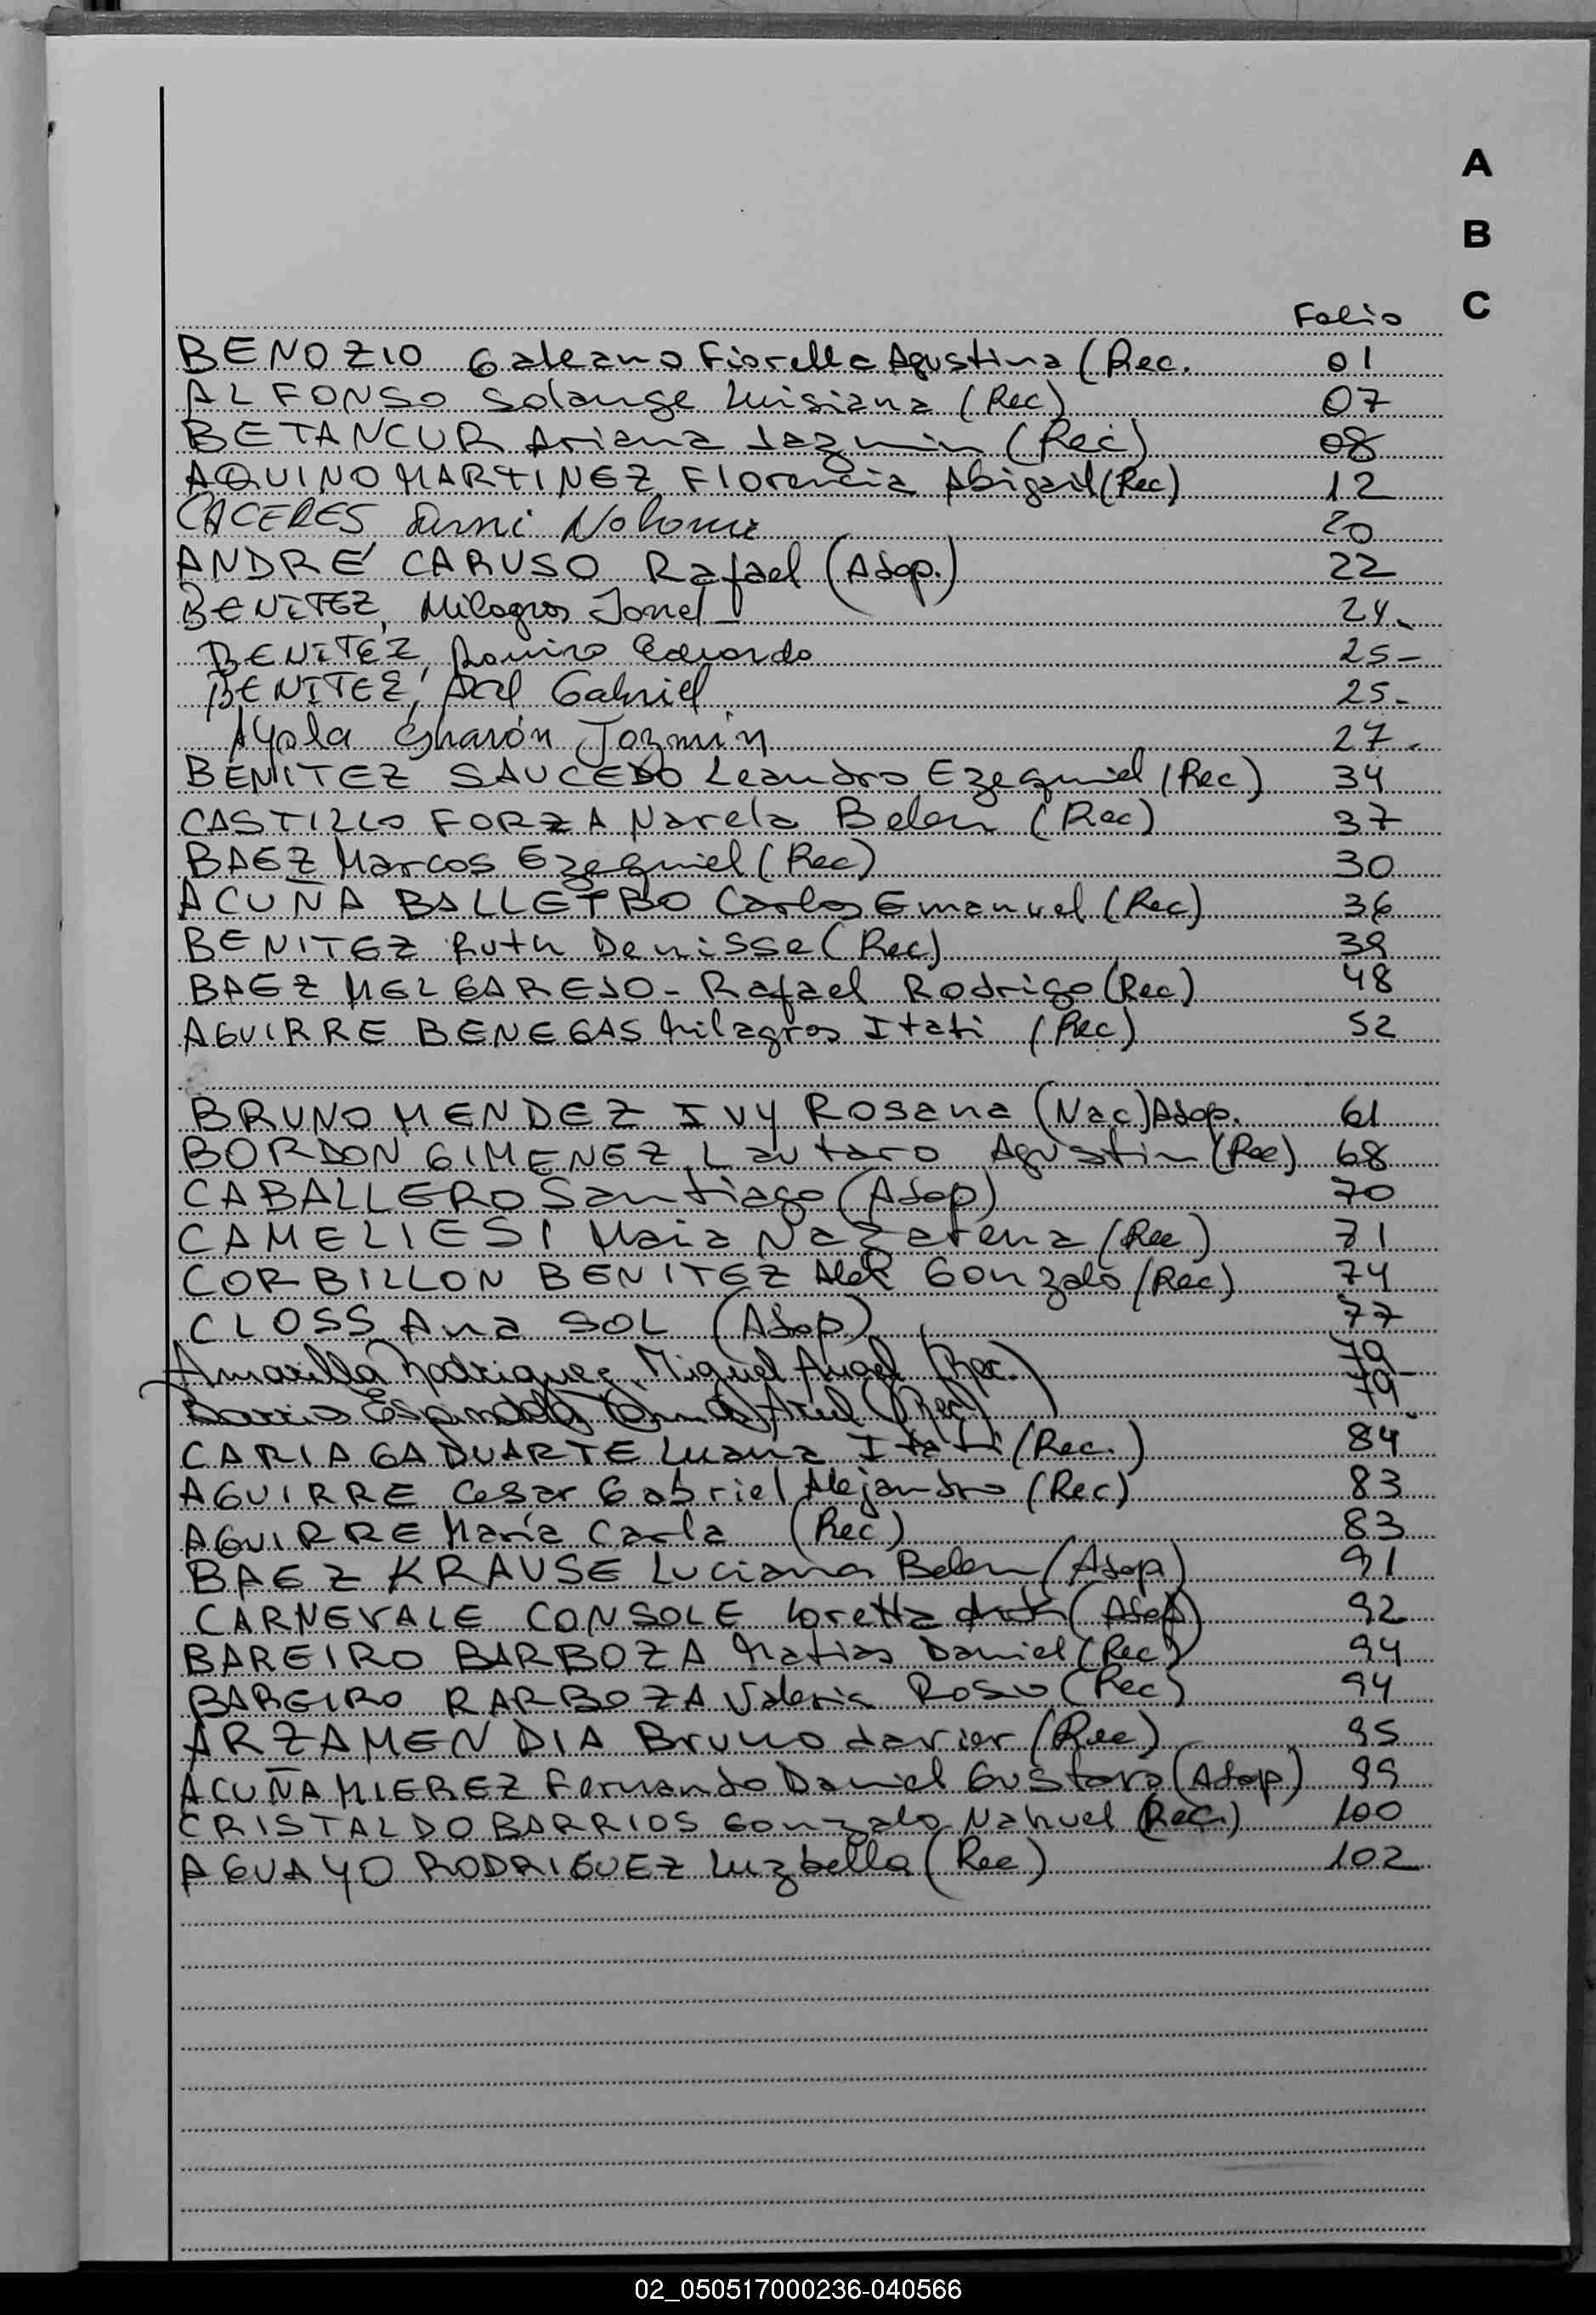 A
B
C
Folio
BENOZIO Galeano Fiorella Agustina (Rec. 01
ALFONSO Solange Luisiana (Rec) 07
BETANCUR Ariana Jazmin (Rec) 08
AQUINO MARTINEZ Florencia Abigail (Rec) 12
CACERES 20
ANDRÉ CARUSO Rafael (Adop.) 22
BENITEZ, Milagros 24.
BENITEZ, Ramiro Eduardo 25-
BENITEZ, Gabriel 25-
Ayala Sharón Jazmín 27.
BENITEZ SAUCEDO Leandro Ezequiel (Rec) 34
CASTILLO FORZA Narela Belen (Rec) 37
BAEZ Marcos Ezequiel (Rec) 30
ACUÑA BALLETBO Carlos Emanuel (Rec) 36
BENITEZ Ruth Denisse (Rec) 39
BAEZ MELGAREJO - Rafael Rodrigo (Rec) 48
AGUIRRE BENEGAS Milagros Itati (Rec) 52
BRUNO MENDEZ IVY Rosana (Nac) Adop. 61
BORDON GIMENEZ Lautaro Agustin (Rec) 68
CABALLERO Santiago (Adop) 70
CAMELIESI Maia Nazarena (Rec) 71
CORBILLON BENITEZ Alex Gonzalo (Rec) 74
CLOSS Ana SOL (Adop) 77
Amarilla Rodriguez, Miguel Angel (Rec.) 79
Barrio Espindola Ariel (Rec) 79
CARIAGA DUARTE Luana Itati (Rec.) 84
AGUIRRE Cesar Gabriel Alejandro (Rec) 83
AGUIRRE María Carla (Rec) 83
BAEZ KRAUSE Luciana Belen (Adop) 91
CARNEVALE CONSOLE Loretta (Adop) 92
BAREIRO BARBOZA Matias Daniel (Rec) 94
BAREIRO BARBOZA Valeria (Rec) 94
ARZAMENDIA Bruno Javier (Rec) 95
ACUÑA MIEREZ Fernando Daniel Gustavo (Adop) 99
CRISTALDO BARRIOS Gonzalo Nahuel (Rec.) 100
AGUAYO RODRIGUEZ Luzbella (Rec) 102
02_050517000236-040566